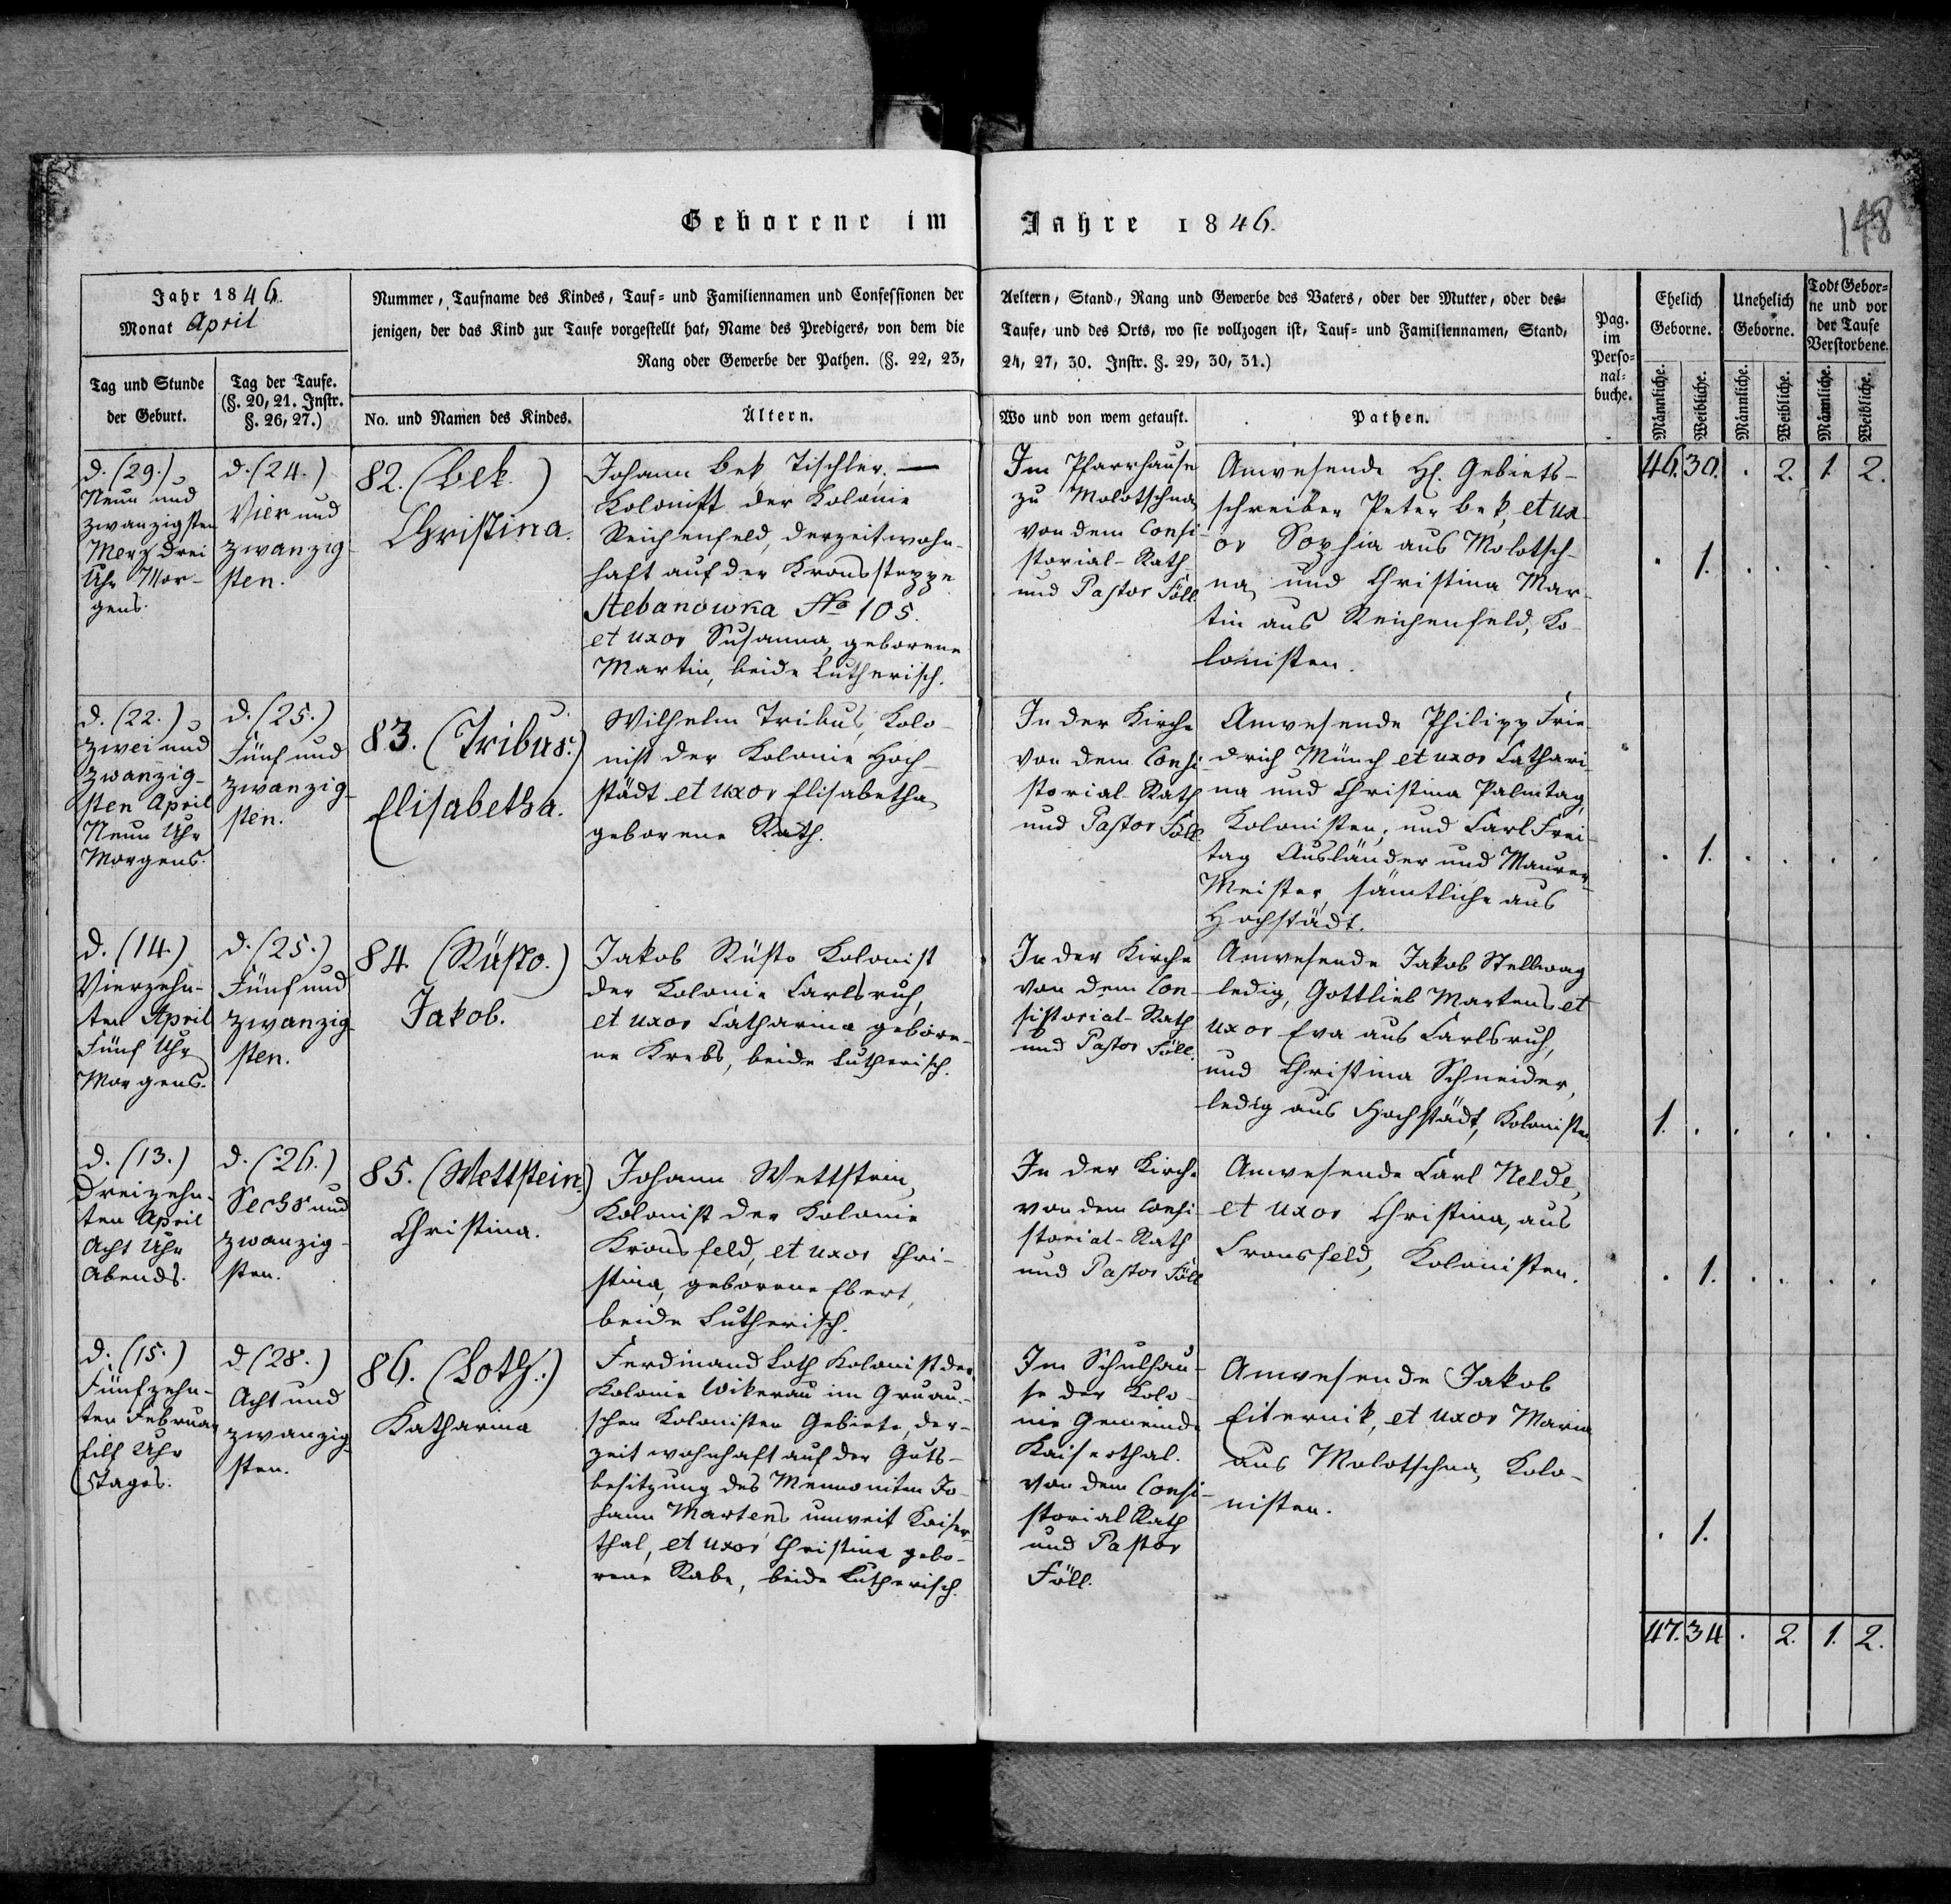 Geborene im Jahre 1846.
148
Jahr 1846.
Monat April
Nummer, Taufname des Kindes, Tauf= und Familiennamen und Confessionen der Aeltern, Stand, Rang und Gewerbe des Vaters, oder der Mutter, oder des=
jenigen, der das Kind zur Taufe vorgestellt hat, Name des Predigers, von dem die Taufe, und des Orts, wo sie vollzogen ist, Tauf= und Familiennamen, Stand,
Rang oder Gewerbe der Pathen. (§. 22, 23, 24, 27, 30. Instr. §. 29, 30, 31.)
Pag.
im
Perso=
nal=
buche.
Ehelich
Geborne.
Unehelich
Geborne.
Todt Gebor=
ne und vor
der Taufe
Verstorbene.
Tag und Stunde
der Geburt.
Tag der Taufe.
(§. 20, 21. Instr.
§. 26, 27.)
No. und Namen des Kindes.
Ältern.
Wo und von wem getauft.
Pathen.
Männliche.
Weibliche.
Männliche.
Weibliche.
Männliche.
Weibliche.
d. (29.)
Neun und
zwanzigsten
Merz drei
Uhr Mor-
gens.
d. (24.)
Vier und
zwanzig-
sten.
82. (Bek.)
Christina.
Johann Bek, Tischler, —
Kolonist der Kolonie
Reichenfeld, derzeit wohn-
haft auf der Kronssteppe
Stebanowka No 105.
et uxor Susanna, geborene
Martin, beide Lutherisch.
Im Pfarrhause
zu Molotschna
von dem Consi-
storial-Rath
und Pastor Föll.
Anwesende H. Gebiets-
schreiber Peter Bek, et ux-
or Sophia aus Molotsch-
na, und Christina Mar-
tin aus Reichenfeld, Ko-
lonisten.
46. 30. . 2. 1. 2.
. 1. . . . .
d. (22.)
Zwei und
zwanzig-
sten April
Neun Uhr
Morgens.
d. (25.)
Fünf und
zwanzig-
sten.
83. (Tribus.)
Elisabetha.
Wilhelm Tribus, Kolo-
nist der Kolonie Hoch-
städt et uxor Elisabetha,
geborene Rath.
In der Kirche
von dem Consi-
storial-Rath
und Pastor Föll.
Anwesende Philipp Frie-
drich Münch et uxor Cathari-
na und Christina Palmtag,
Kolonisten; und Carl Frei-
tag Ausländer und Maurer-
Meister, sämtliche aus
Hochstädt.
. 1. . . . .
d. (14.)
Vierzehn-
ten April
Fünf Uhr
Morgens.
d. (25.)
Fünf und
zwanzig-
sten.
84. (Rüsto.)
Jakob.
Jakob Rüsto Kolonist
der Kolonie Carlsruh,
et uxor Catharina gebore-
ne Krebs, beide Lutherisch.
In der Kirche
von dem Con-
sistorial-Rath
und Pastor Föll.
Anwesende Jakob Stellwag
ledig, Gottlieb Martens et
uxor Eva aus Carlsruh,
und Christina Schneider,
ledig aus Hochstädt, Kolonisten
1. . . . . .
d. (13.)
Dreizehn-
ten April
Acht Uhr
Abends.
d. (26.)
Sechs und
zwanzig-
sten.
85. (Wettstein.)
Christina.
Johann Wettstein,
Kolonist der Kolonie
Kronsfeld, et uxor Chri-
stina, geborene Ebert,
beide Lutherisch.
In der Kirche
von dem Consi-
storial-Rath
und Pastor Föll
Anwesende Carl Nelde,
et uxor Christina, aus
Cronsfeld, Kolonisten.
. 1. . . . .
d. (15.)
Fünfzehn-
ten Februar
Eilf Uhr
Tages.
d. (28.)
Acht und
zwanzig-
sten.
86. (Loth.)
Katharina
Ferdinand Loth Kolonist der
Kolonie Wikerau im Grunau-
schen Kolonisten Gebiete, der-
zeit wohnhaft auf der Guts-
besitzung des Mennoniten Jo-
hann Martens unweit Kaiser-
thal, et uxor Christina gebo-
rene Rabe, beide Lutherisch.
Im Schulhau-
se der Kolo-
nie Gemeinde
Kaiserthal.
von dem Consi-
storial Rath
und Pastor
Föll.
Anwesende Jakob
Eiternik, et uxor Maria
aus Molotschna, Kolo-
nisten.
. 1.
47. 34 . 2. 1. 2.